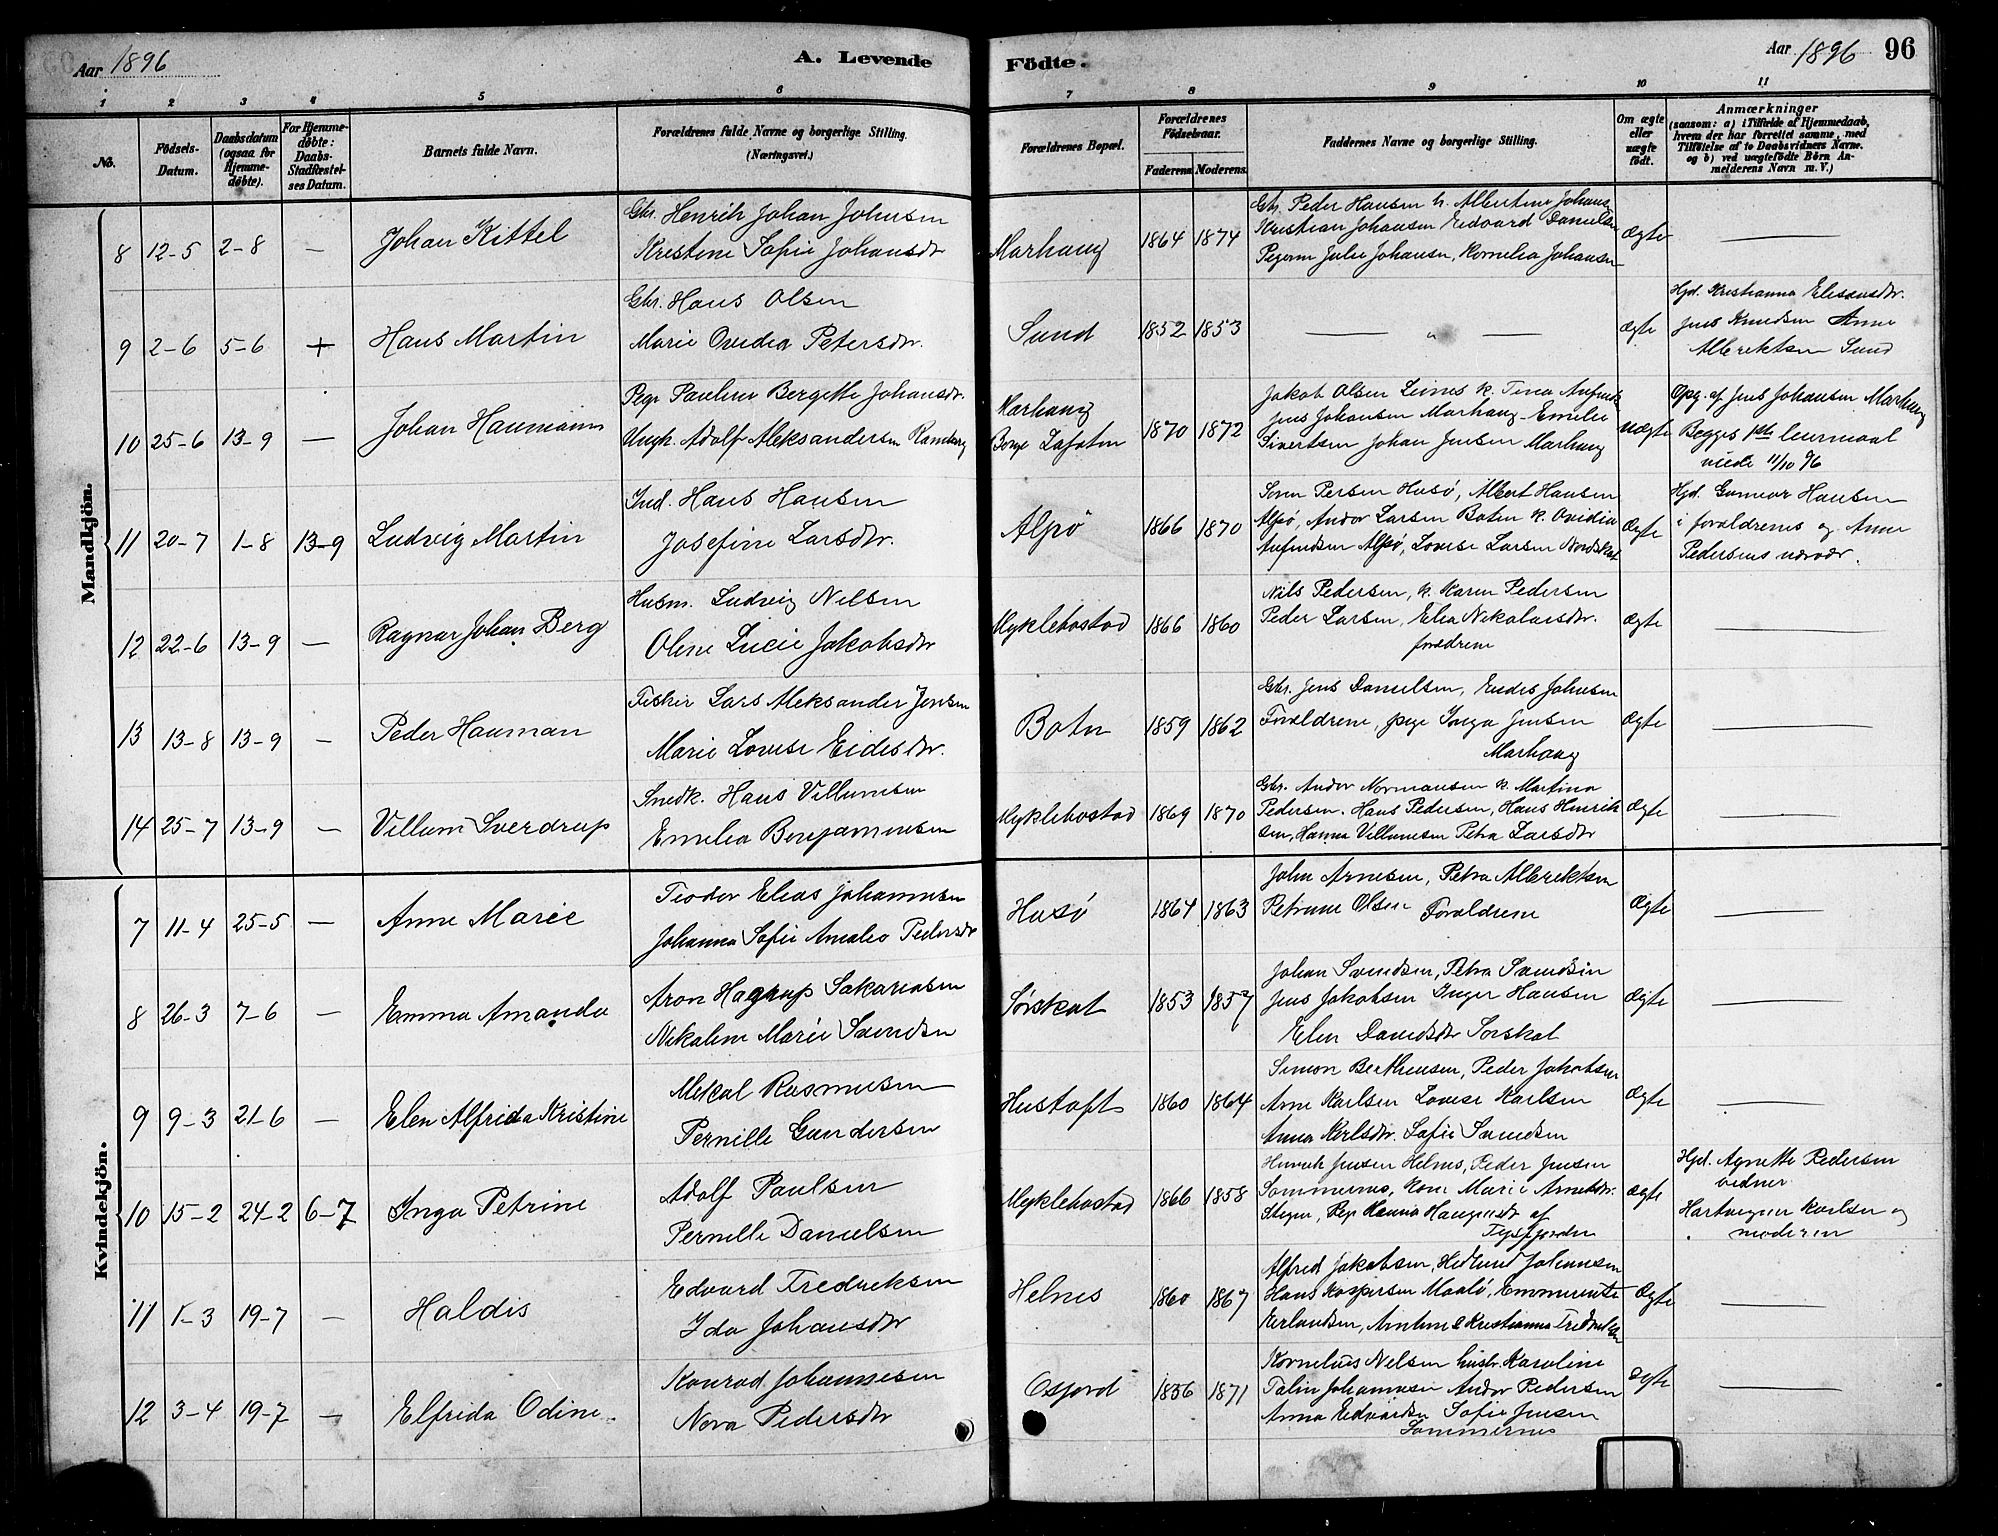 Aar 1896
A. Levende
Födte.
Aar 1896 96
1 2 3 4 5 6 7 8 9 10 11
No.
Födsels-Datum.
Daabsdatum (ogsaa for Hjemmedöbte).
For Hjemmedöbte: Daabs-Stadfæstelses Datum.
Barnets fulde Navn.
Forældrenes fulde Navne og borgerlige Stilling. (Næringsvei.)
Forældrenes Bopæl.
Forældrenes Födselsaar.
Faderens Moderens
Faddernes Navne og borgerlige Stilling.
Om ægte eller uægte födt.
Anmærkninger
(saasom: a) i Tilfælde af Hjemmedaab, hvem der har forrettet samme, med Tilföielse af to Daabsvidners Navne. og b) ved uægtefödte Börn Anmelderens Navn m. V.)
Mandkjön.
8 12-5 2-8 — Johan Kittel
Gbr. Henrik Johan Johnsen
Kristine Sofie Johansdr
Marhaug 1864 1874
Gbr. Peder Hansen h. Albertine Johans
Kristian Johansen Edvard Daniels
Pegerm Julie Johansen, Kornelia Johansen
Ægte —
9 2-6 5-6 + Hans Martin
Gbr. Hans Olsen
Marie Ovidia Petersdr.
Sund 1852 1853
— " —
Ægte
Hjd. Kristianna Eliasdr.
Jens Knudsen Anne
Albriktsen Sund
10 25-6 13-9 — Johan Haumann
Pige Pauline Bergitte Johansdr.
Ungk. Adolf Aleksandersen Ramberg
Marhaug
Borge Lofoten
1870 1872
Jakob Olsen Leines k. Tina
Jens Johansen Marhaug - Emilie
Sivertsen Johan Jensen Marhaug
Uægte
Opg. af Jens Johansen Marhaug
Begges 1ste leiermaal
viede 11/10 96
11 20-7 1-8 13-9 Ludvig Martin
Ind. Hans Hansen
Josefine Larsdr.
Alpö 1866 1870
Soren Persen Husö, Albert Hansen
Alpö, Andor Larsen Botn k. Ovidia
Arfindsen Alpö, Lovise Larsen Nordskot
Ægte
Hjd. Gunnar Hansen
i forældrenes og Anne
Pedersens nærvær.
12 22-6 13-9 — Ragnar Johan Berg
Husm. Ludvig Nilsen
Oline Lucie Jakobsdr
Myklebostad 1866 1860
Nils Pedersen, k. Karen Pedersen
Peder Larsen, Elea Nikolaisdr.
forældrene
Ægte —
13 13-8 13-9 — Peder Hauman
Fisker Lars Aleksander Jensen
Marie Lovise Eidesdr.
Botn 1859 1862
Gbr. Jens Danielsen, Endes Johnsen
Forældrene, pige Inga Jensen
Marhaug
Ægte —
14 25-7 13-9 — Villum Sverdrup
Snedk. Hans Villumsen
Emilia Benjaminsen
Myklebostad 1869 1870
Gbr. Andor Normansen k. Martina
Pedersen. Hans Pedersen, Hans Hinrik
sen, Hanna Villumsen Petra Larsdr
Ægte —
Kvindekjön.
7 11-4 25-5 — Anne Marie
Teodor Elias Johannesen
Johanna Sofie Amalia Pedersdr
Husö 1864 1863
John Arnesen, Petra Albriktsen
Petrine Olsen Forældrene
Ægte —
8 26-3 7-6 — Emma Amanda
Aron Hagrup Sakariasen
Nikaline Marie Svendsen
Sörskot 1853 1857
Johan Svendsen, Petra Svendsen
Jens Jakobsen Inger Hansen
Elen Davidsdr Sorskot
Ægte —
9 9-3 21-6 — Elen Alfrida Kristine
Mikal Rasmusen
Pernille Gundersen
Hustoft 1860 1864
Simon Bertheusen, Peder Jakobsen
Arne Karlsen Lovise Karlsen
Anna Nerlsdr. Sofie Svendsen
Ægte —
10 15-2 24-2 6-7 Inga Petrine
Adolf Paulsen
Pernille Danielsen
Myklebostad 1866 1858
Hinrik Jensen Helnes, Peder Jensen
Sommernes, kone Marie Arntsdr.
Steger, Pige Hanna Haugensdr af
Tysfjorden
Ægte
Hjd. Agnette Pedersen
vidner
Hartvigsen Karlsen og
moderen
11 1-3 19-7 — Haldis
Edvard Fredriksen
Ida Johansdr
Helnes 1860 1867
Alfred Jakobsen, Hedlund Johannesen
Hans Kaspersen Maalö, Emmerentse
Erlandsen, Arntine & Kristianna Fredriksen
Ægte —
12 3-4 19-7 — Elfrida Odine
Konrad Johannesen
Nova Pedersdr
Osfjord 1856 1871
Kornelius Nilsen hustr. Karoline
Talin Johannesen Andor Pedersen
Anna Edvardsen Sofie Jensen
Sommernes
Ægte —